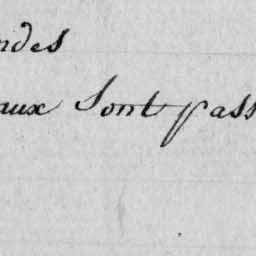 ndes
aux Sont pass